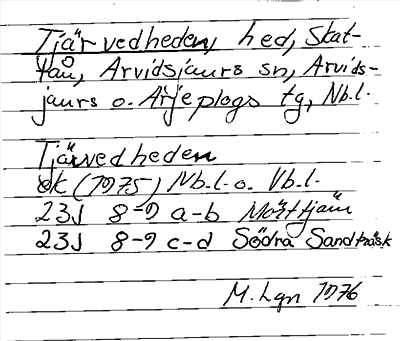 Tjärvedheden, hed, Skat-
tån, Arvidsjaurs sn, Arvids-
jaurs o. Arjeplogs tg, Nb.l.
Tjärvedheden
ek (1975) Nb.l. o. Vb.l.
23J 8-9 a-b Mörttjärn
23J 8-9 c-d Södra Sandträsk
M. Lgn 1976